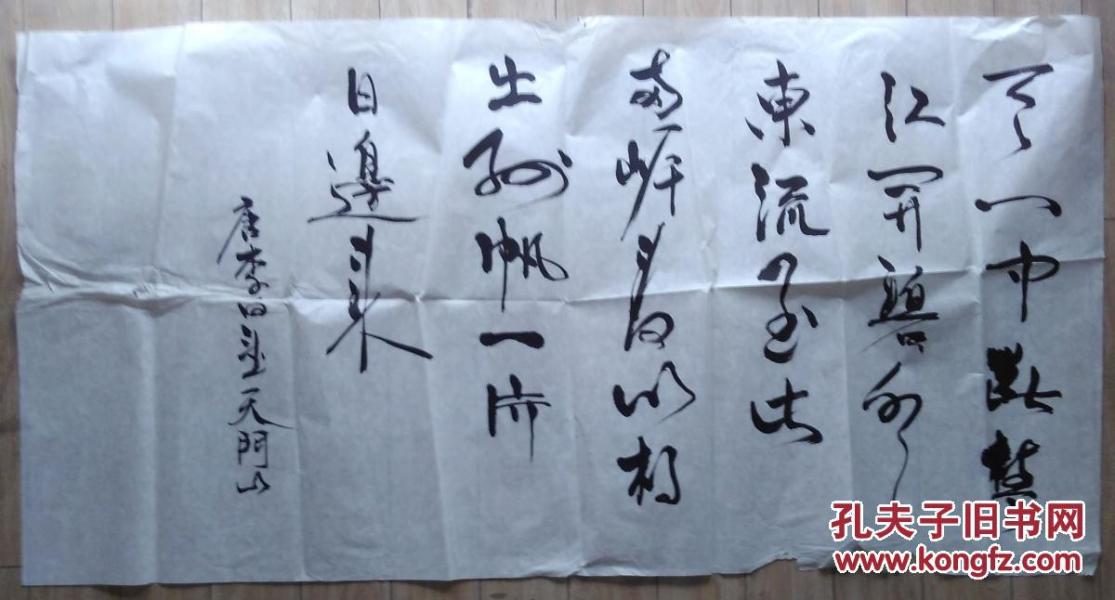 天門中斷楚
江開碧水
東流至此
兩岸青山相
出孤帆一片
日邊來
唐李白望天門山
孔夫子旧书网
www.kongfz.com